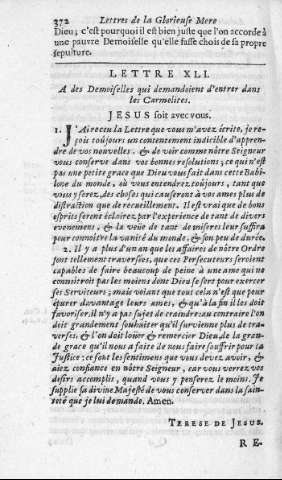 372 Lettres de la Glorieuse Mere
Dieu; c'est pourquoi il est bien juste que l'on accorde à
une pauvre Demoiselle qu'elle fasse chois de sa propre
sepulture.
LETTRE XLI.
A des Demoiselles qui demandoient d'entrer dans
les Carmelites.
JESUS soit avec vous.
1. J'Ai receu la Lettre que vous m'avez écrite, je re-
çois toujours un contentement indicible d'appren-
dre de vos nouvelles, & de voir comme nôtre Seigneur
vous conserve dans vos bonnes resolutions; ce qui n'est
pas une petite grace que Dieu vous fait dans cette Babi-
lone du monde, où vous entendrez toujours, tant que
vous y serez, des choses qui causeront à vos ames plus de
distraction que de recueillement. Il est vrai que de bons
esprits seront éclairez par l'experience de tant de divers
evenemens, & la veuë de tant de miseres leur suffira
pour connoître la vanité du monde, & son peu de durée.
2. Il y a plus d'un an que les affaires de nôtre Ordre
sont tellement traversées, que ces Persecuteurs seroient
capables de faire beaucoup de peine à une ame qui ne
connoitroit pas les moiens dont Dieu se sert pour exercer
ses Serviteurs; mais voiant que tous cela n'est que pour
épurer davantage leurs ames, & qu'à la fin il les doit
favoriser, il n'y a pas sujet de craindre: au contraire l'on
doit grandement souhaiter qu'il survienne plus de tra-
verses, & l'on doit loüer & remercier Dieu de la gran-
de grace qu'il nous a faite de nous faire souffrir pour la
Justice: ce sont les sentimens que vous devez avoir, &
aiez confiance en nôtre Seigneur, car vous verrez vos
desirs accomplis, quand vous y penserez le moins. Je
supplie sa divine Majesté de vous conserver dans la sain-
teté que je lui demande. Amen.
TERESE DE JESUS.
RE.